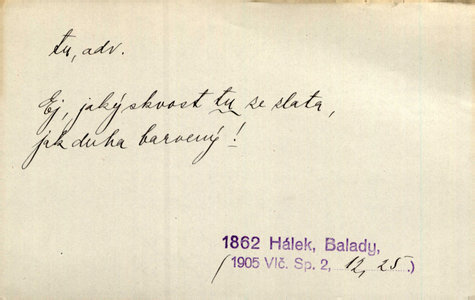 tu, adv.
Ej, jaký skvost tu ze zlata,
jak duha barvený!
1862 Hálek, Balady,
(1905 Vlč. Sp. 2, 12, 25.)